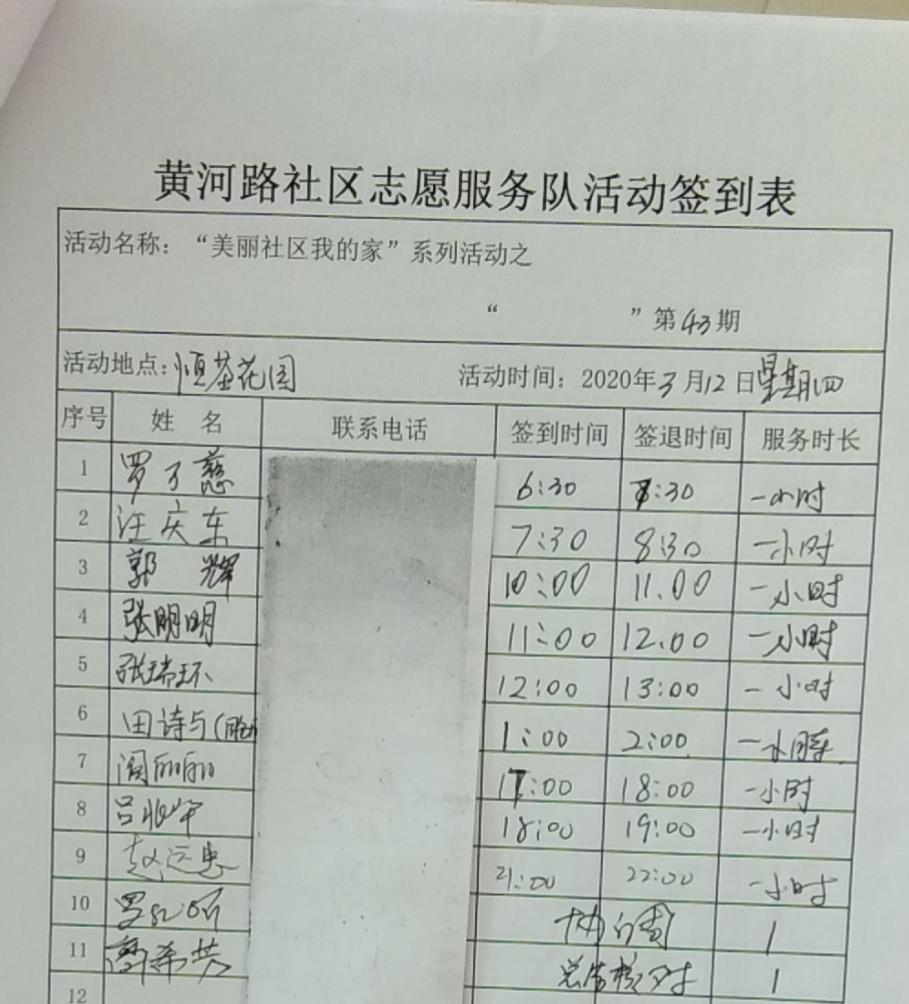 黄河路社区志愿服务队活动签到表
活动名称：“美丽社区我的家”系列活动之
“ ”第43期
活动地点：恒基花园 活动时间：2020年3月12日星期四
序号 姓名 联系电话 签到时间 签退时间 服务时长
1 罗子慈 6:30 7:30 一小时
2 汪庆东 7:30 8:30 一小时
3 郭辉 10:00 11.00 一小时
4 张明明 11:00 12.00 一小时
5 张瑞环 12:00 13:00 一小时
6 田诗与( 1:00 2:00 一小时
7 阎丽丽 17:00 18:00 一小时
8 吕 18:00 19:00 一小时
9 赵运忠 21:00 22:00 一小时
10 罗 1
11 1
12